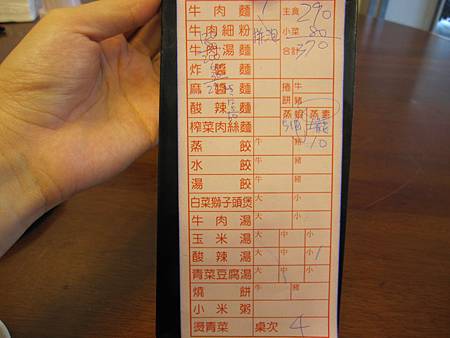 牛肉麵 1 主食 290
牛肉細粉 小菜 80
牛肉湯麵 合計 370
炸醬麵
麻醬麵 捲餅 牛
酸辣麵 豬
榨菜肉絲麵 蒸蝦 蒸素
蒸餃 牛 豬 10
水餃 牛 豬
湯餃 牛 豬
白菜獅子頭煲 大 小
牛肉湯 大 小
玉米湯 大 中 小
酸辣湯 大 中 小 1
青菜豆腐湯 大 中 小
燒餅 牛 豬
小米粥
燙青菜 桌次 4